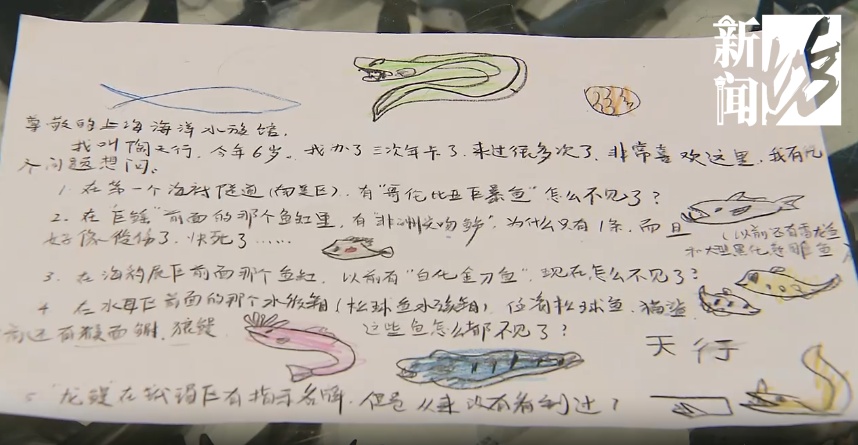 新闻
尊敬的上海海洋水族馆.
我叫陶天行,今年6岁。我办了三次年卡了,来过很多次了,非常喜欢这里,我有几
个问题想问。
1. 在第一个海底隧道(南美区),有"哥伦比亚巨暴鱼"怎么不见了?
2. 在"巨 前面的那个鱼缸里,有"非洲尖吻鲈",为什么只有1条,而且
(以前还有雷龙鱼
好像受伤了,快死了……
和大型黑化 鱼)
3. 在海豹展区前面那个鱼缸,以前有"白化金刀鱼",现在怎么不见了?
4 在水母区前面的那个水族箱(松球鱼水族箱),住着松球鱼,猫鲨
前还有猴面鳚,狼鳗 这些鱼怎么都不见了?
天行
5 "龙鳗"在 区有指示名牌,但是从来没有看到过?